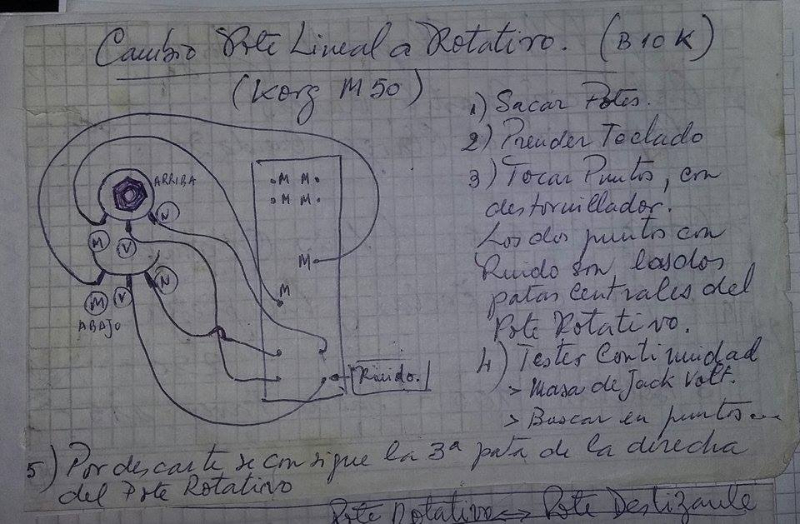 Cambio Pote Lineal a Rotativo. (B10K)
(Korg M50)
1) Sacar Potes.
2) Prender Teclado
3) Tocar Puntos, con
destornillador.
Los dos puntos con
Ruido son las dos
patas centrales del
Pote Rotativo.
4) Tester Continuidad
> Masa de Jack Volt.
> Buscar en puntos
5) Por descarte se consigue la 3ª pata de la derecha
del Pote Rotativo
Pote Rotativo <-> Pote Deslizante
ARRIBA
M V N
M V N
ABAJO
M M
M M
M
M
Ruido.